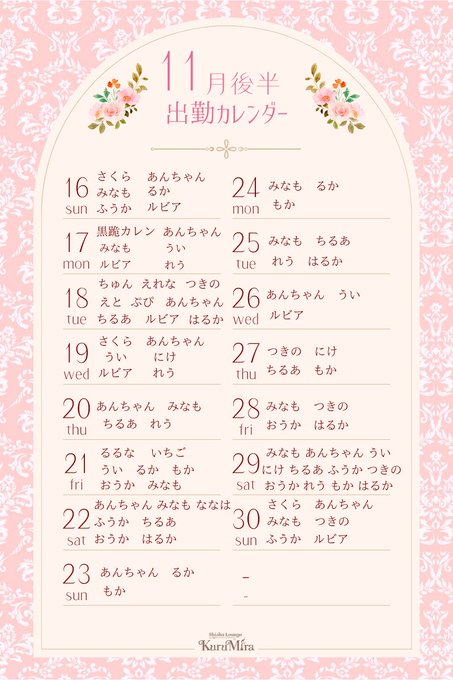 11月後半
出勤カレンダー
16 sun
さくら あんちゃん
みなも るか
ふうか ルビア
17 mon
黒跪カレン あんちゃん
みなも うい
ルビア れう
18 tue
ちゅん えれな つきの
えと ぷぴ あんちゃん
ちるあ ルビア はるか
19 wed
さくら あんちゃん
うい にけ
ルビア れう
20 thu
あんちゃん みなも
ちるあ れう
21 fri
るるな いちご
うい るか もか
おうか みなも
22 sat
あんちゃん みなも ななは
ふうか ちるあ
おうか はるか
23 sun
あんちゃん るか
もか
24 mon
みなも るか
もか
25 tue
みなも ちるあ
れう はるか
26 wed
あんちゃん うい
ルビア
27 thu
つきの にけ
ちるあ もか
28 fri
みなも つきの
おうか はるか
29 sat
みなも あんちゃん うい
にけ ちるあ ふうか つきの
おうか れう もか はるか
30 sun
さくら あんちゃん
みなも つきの
ふうか ルビア
-
-
Shisha Lounge
KuruMira